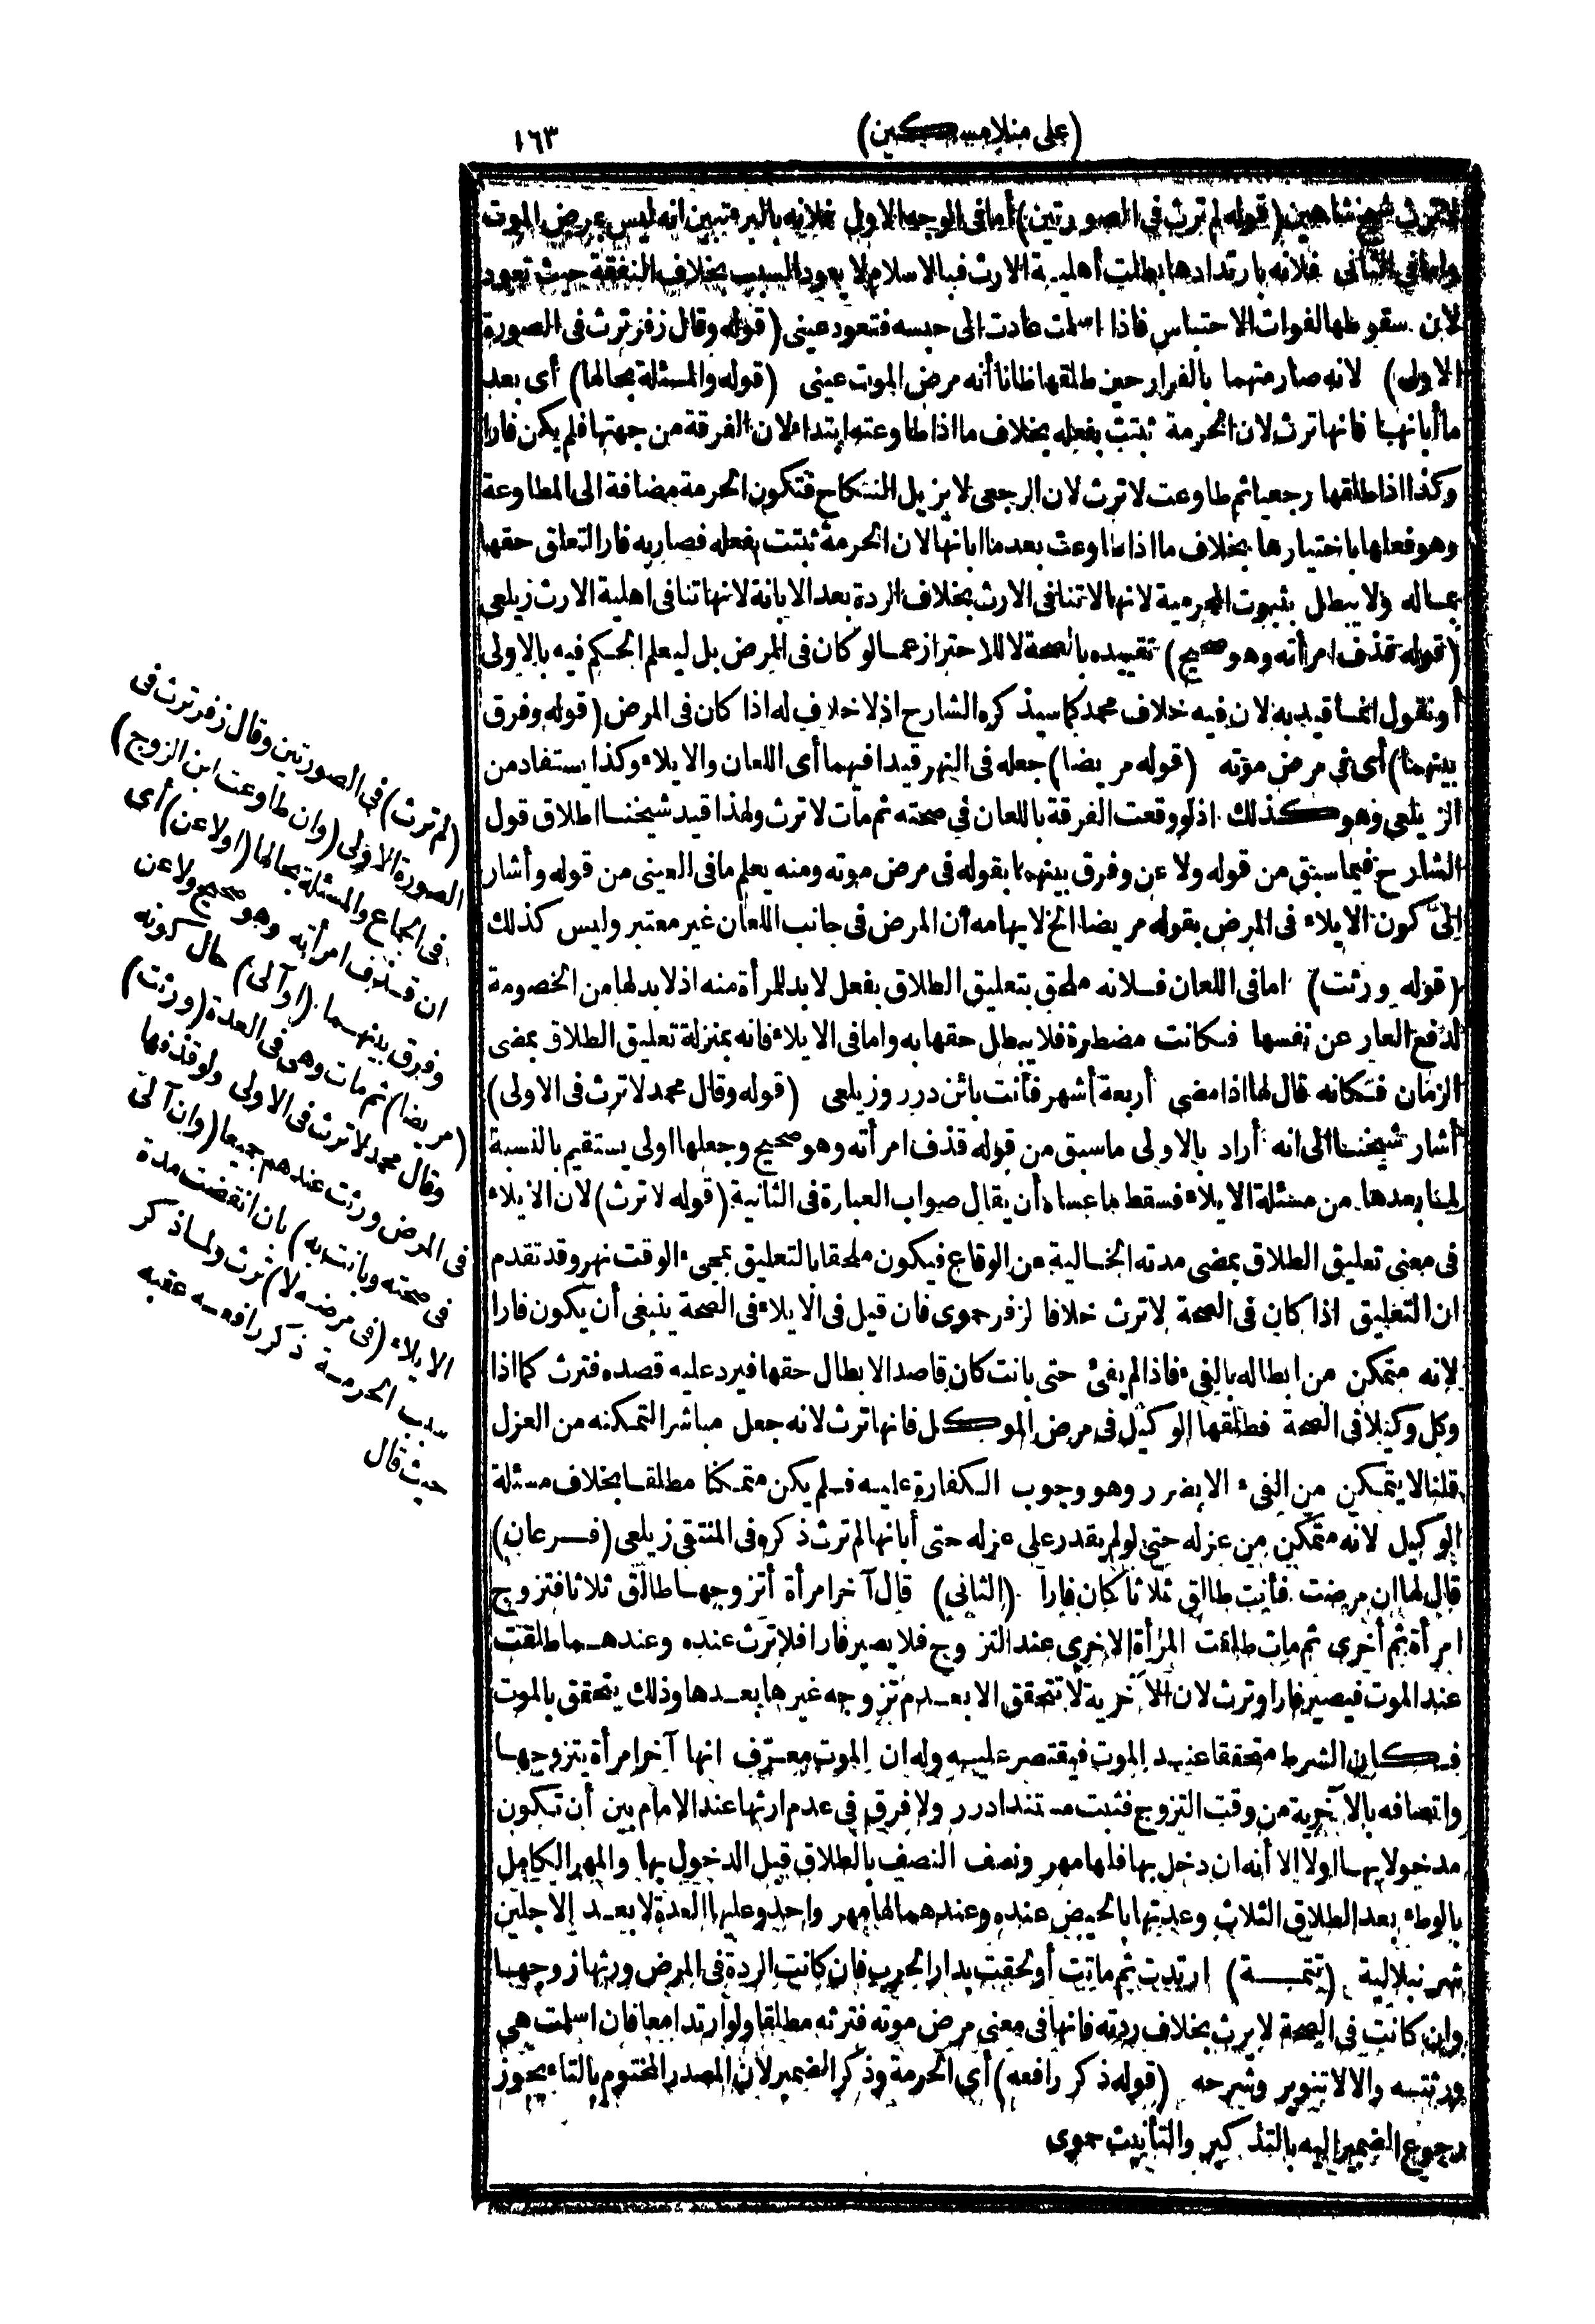 (على منلا مسكين) ١٦٣
لا ترث شيخ شاهين (قوله لم ترث في الصورتين) أما في الوجه الاول فلانه بالبرء تبين انه ليس بمرض الموت
وأما في الثاني فلانه بارتدادها بطلت أهلية الارث فبالاسلام لا يعود السبب بخلاف النفقة حيث تعود
لان سقوطها لفوات الاحتباس فاذا اسلمت عادت الى حبسه فتعود عينى (قوله وقال زفر ترث فى الصورة
الاولى) لانه صار متهما بالفرار حين طلقها ظانا أنه مرض الموت عينى (قوله والمسئلة بحالها) أى بعد
ما أبانها فانها ترث لان الحرمة ثبتت بفعله بخلاف ما اذا طاوعته ابتداء لان الفرقة من جهتها فلم يكن فارا
وكذا اذا طلقها رجعيا ثم طاوعت لا ترث لان الرجعى لا يزيل النكاح فتكون الحرمة مضافة الى المطاوعة
وهو فعلها باختيارها بخلاف ما اذا طاوعت بعد ما ابانها لان الحرمة ثبتت بفعله فصار به فارا لتعلق حقها
بماله ولا يبطل بثبوت المحرمية لانها لا تنافى الارث بخلاف الردة بعد الابانة لانها تنافى اهلية الارث زيلعى
(قوله قذف امرأته وهو صحيح) تقييده بالصحة لا للاحتراز عما لو كان فى المرض بل ليعلم الحكم فيه بالاولى
أو نقول انما قيد به لان فيه خلاف محمد كما سيذكره الشارح اذ لا خلاف له اذا كان فى المرض (قوله وفرق
بينهما) أى فى مرض موته (قوله مريضا) جعله فى النهر قيدا فيهما أى اللعان والايلاء وكذا يستفاد من
الزيلعى وهو كذلك اذ لو وقعت الفرقة باللعان في صحته ثم مات لا ترث ولهذا قيد شيخنا اطلاق قول
الشارح فيما سبق من قوله ولاعن وفرق بينهما بقوله فى مرض موته ومنه يعلم ما فى العينى من قوله وأشار
الى كون الايلاء فى المرض بقوله مريضا الخ لايهامه أن المرض فى جانب اللعان غير معتبر وليس كذلك
(قوله ورثت) اما فى اللعان فلانه ملحق بتعليق الطلاق بفعل لابد للمرأة منه اذ لابد لها من الخصومة
لدفع العار عن نفسها فكانت مضطرة فلا يبطل حقها به واما فى الايلاء فانه بمنزلة تعليق الطلاق بمضى
الزمان فكانه قال لها اذا مضى أربعة أشهر فأنت بائن درر وزيلعى (قوله وقال محمد لا ترث فى الاولى)
أشار شيخنا الى انه أراد بالاولى ما سبق من قوله قذف امرأته وهو صحيح وجعلها اولى يستقيم بالنسبة
لما بعدها من مسئلة الايلاء فسقط ما عساه أن يقال صواب العبارة فى الثانية (قوله لا ترث) لان الايلاء
فى معنى تعليق الطلاق بمضى مدته الخالية عن الوقاع فيكون ملحقا بالتعليق بمجىء الوقت نهر وقد تقدم
ان التعليق اذا كان فى الصحة لا ترث خلافا لزفر حموى فان قيل فى الايلاء فى الصحة ينبغى أن يكون فارا
لانه متمكن من ابطاله بالفىء فاذا لم يفئ حتى بانت كان قاصدا لابطال حقها فيرد عليه قصده فترث كما اذا
وكل وكيلا فى الصحة فطلقها الوكيل فى مرض الموكل فانها ترث لانه جعل مباشرا لتمكنه من العزل
قلنا لا يتمكن من الفىء الا بضرر وهو وجوب الكفارة عليه فلم يكن متمكنا مطلقا بخلاف مسئلة
الوكيل لانه متمكن من عزله حتى لو لم يقدر على عزله حتى أبانها لم ترث ذكره فى المنتقى زيلعى (فرعان)
قال لها ان مرضت فأنت طالق ثلاثا كان فارا (الثانى) قال آخر امرأة أتزوجها طالق ثلاثا فتزوج
امرأة ثم أخرى ثم مات طلقت المرأة الاخرى عند التزوج فلا يصير فارا فلا ترث عنده وعندهما طلقت
عند الموت فيصير فارا وترث لان الآخرية لا تتحقق الا بعدم تزوجه غيرها بعدها وذلك يتحقق بالموت
فكان الشرط متحققا عند الموت فيقتصر عليه وله ان الموت معرّف انها آخر امرأة يتزوجها
واتصافه بالآخرية من وقت التزوج فثبت مستندا درر ولا فرق فى عدم ارثها عند الامام بين أن تكون
مدخولا بها اولا الا أنه ان دخل بها فلها مهر ونصف النصف بالطلاق قبل الدخول بها والمهر الكامل
بالوطء بعد الطلاق الثلاث وعدتها بالحيض عنده وعندهما لها مهر واحد وعليها العدة لابعد الاجلين
شرنبلالية (تتمة) ارتدت ثم ماتت أو لحقت بدار الحرب فان كانت الردة فى المرض ورثها زوجها
وان كانت فى الصحة لا يرث بخلاف ردته فانها فى معنى مرض موته فترثه مطلقا ولو ارتدا معا فان اسلمت هى
ورثته والا لا تنوير وشرحه (قوله ذكر رافعه) أى الحرمة وذكر الضمير لان المصدر المختوم بالتاء يجوز
رجوع الضمير اليه بالتذكير والتأنيث حموى
(لم ترث) في الصورتين وقال زفر ترث فى
الصورة الاولى (وان طاوعت ابن الزوج)
فى الجماع والمسئلة بحالها (اولاعن) أى
ان قذف امرأته وهو صحيح ولاعن
وفرق بينهما (او آلى) حال كونه
(مريضا) ثم مات وهى فى العدة (ورثت)
وقال محمد لا ترث فى الاولى ولو قذفها
فى المرض ورثت عندهم جميعا (وان آلى
فى صحته وبانت به) بان انقضت مدة
الايلاء (فى مرضه لا) ترث ولما ذكر
سبب الحرمة ذكر رافعه عقبه
حيث قال